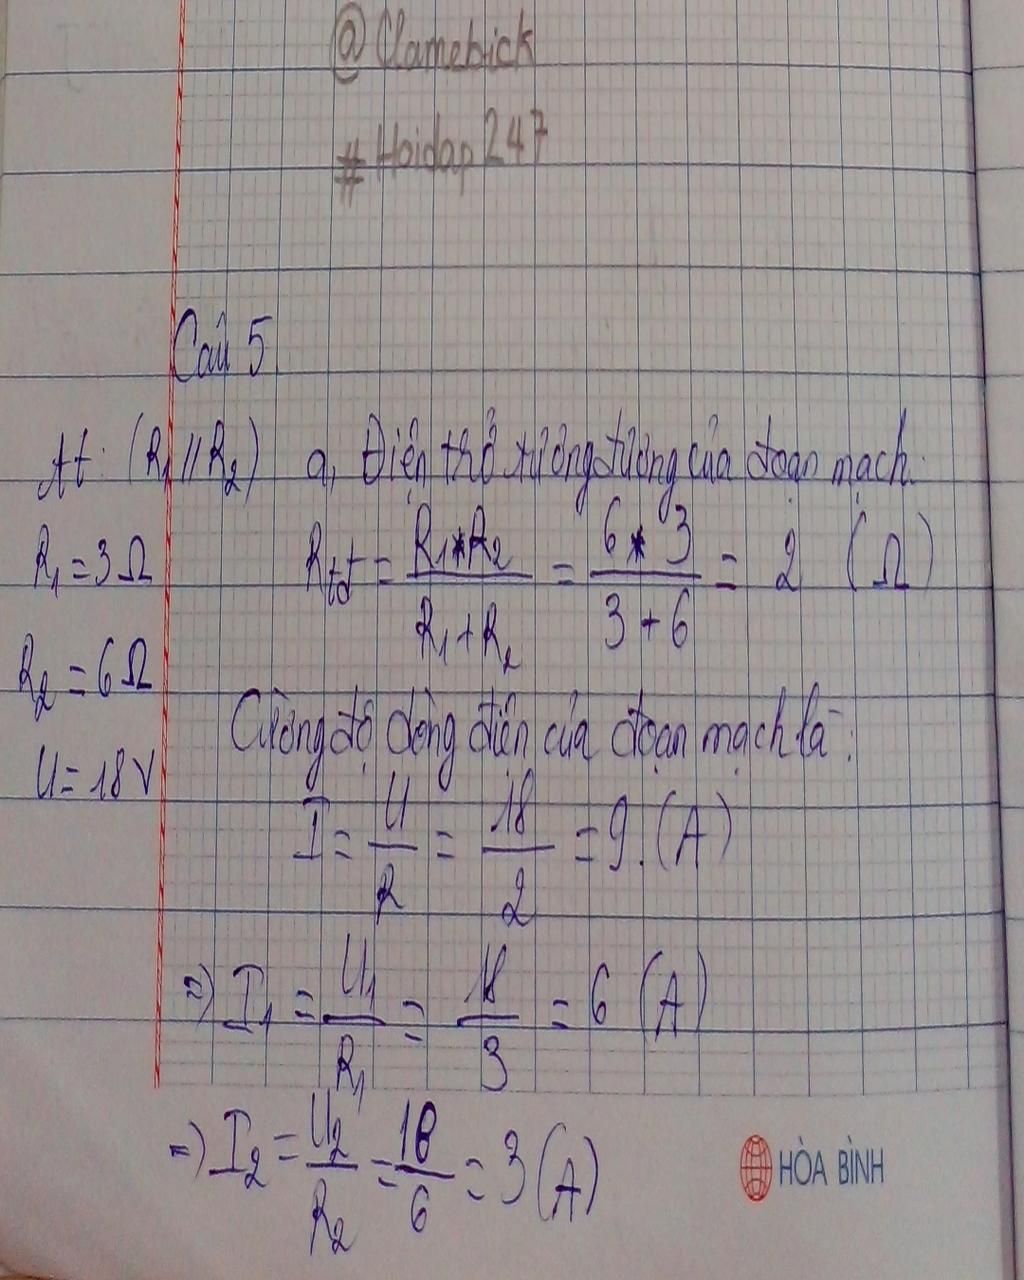 @Clamebick
#Hoidap247
Câu 5
At: (R1//R2)
R1=3Ω
R2=6Ω
U=18V
a, Điện thở tương đương của đoạn mạch.
Rtđ = R1*R2 / R1+R2 = 6*3 / 3+6 = 2 (Ω)
Cường độ dòng điện của đoạn mạch là:
I = U / R = 18 / 2 = 9. (A)
=) I1 = U1 / R1 = 18 / 3 = 6 (A)
=) I2 = U2 / R2 = 18 / 6 = 3 (A)
HÒA BÌNH